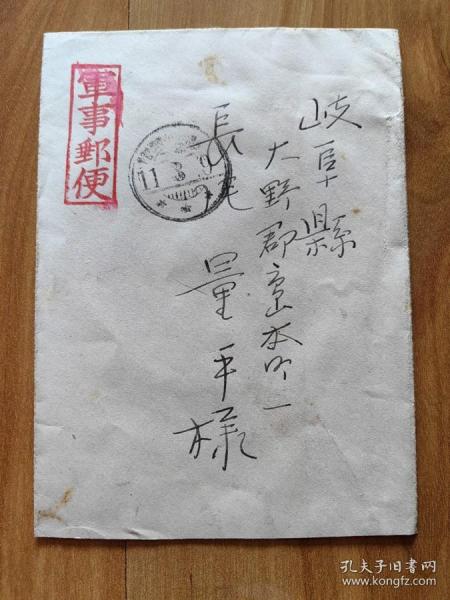 岐阜縣
大野郡高山本町一
長瀬 量平様
軍事郵便
11 3 9
孔夫子旧书网
www.kongfz.com